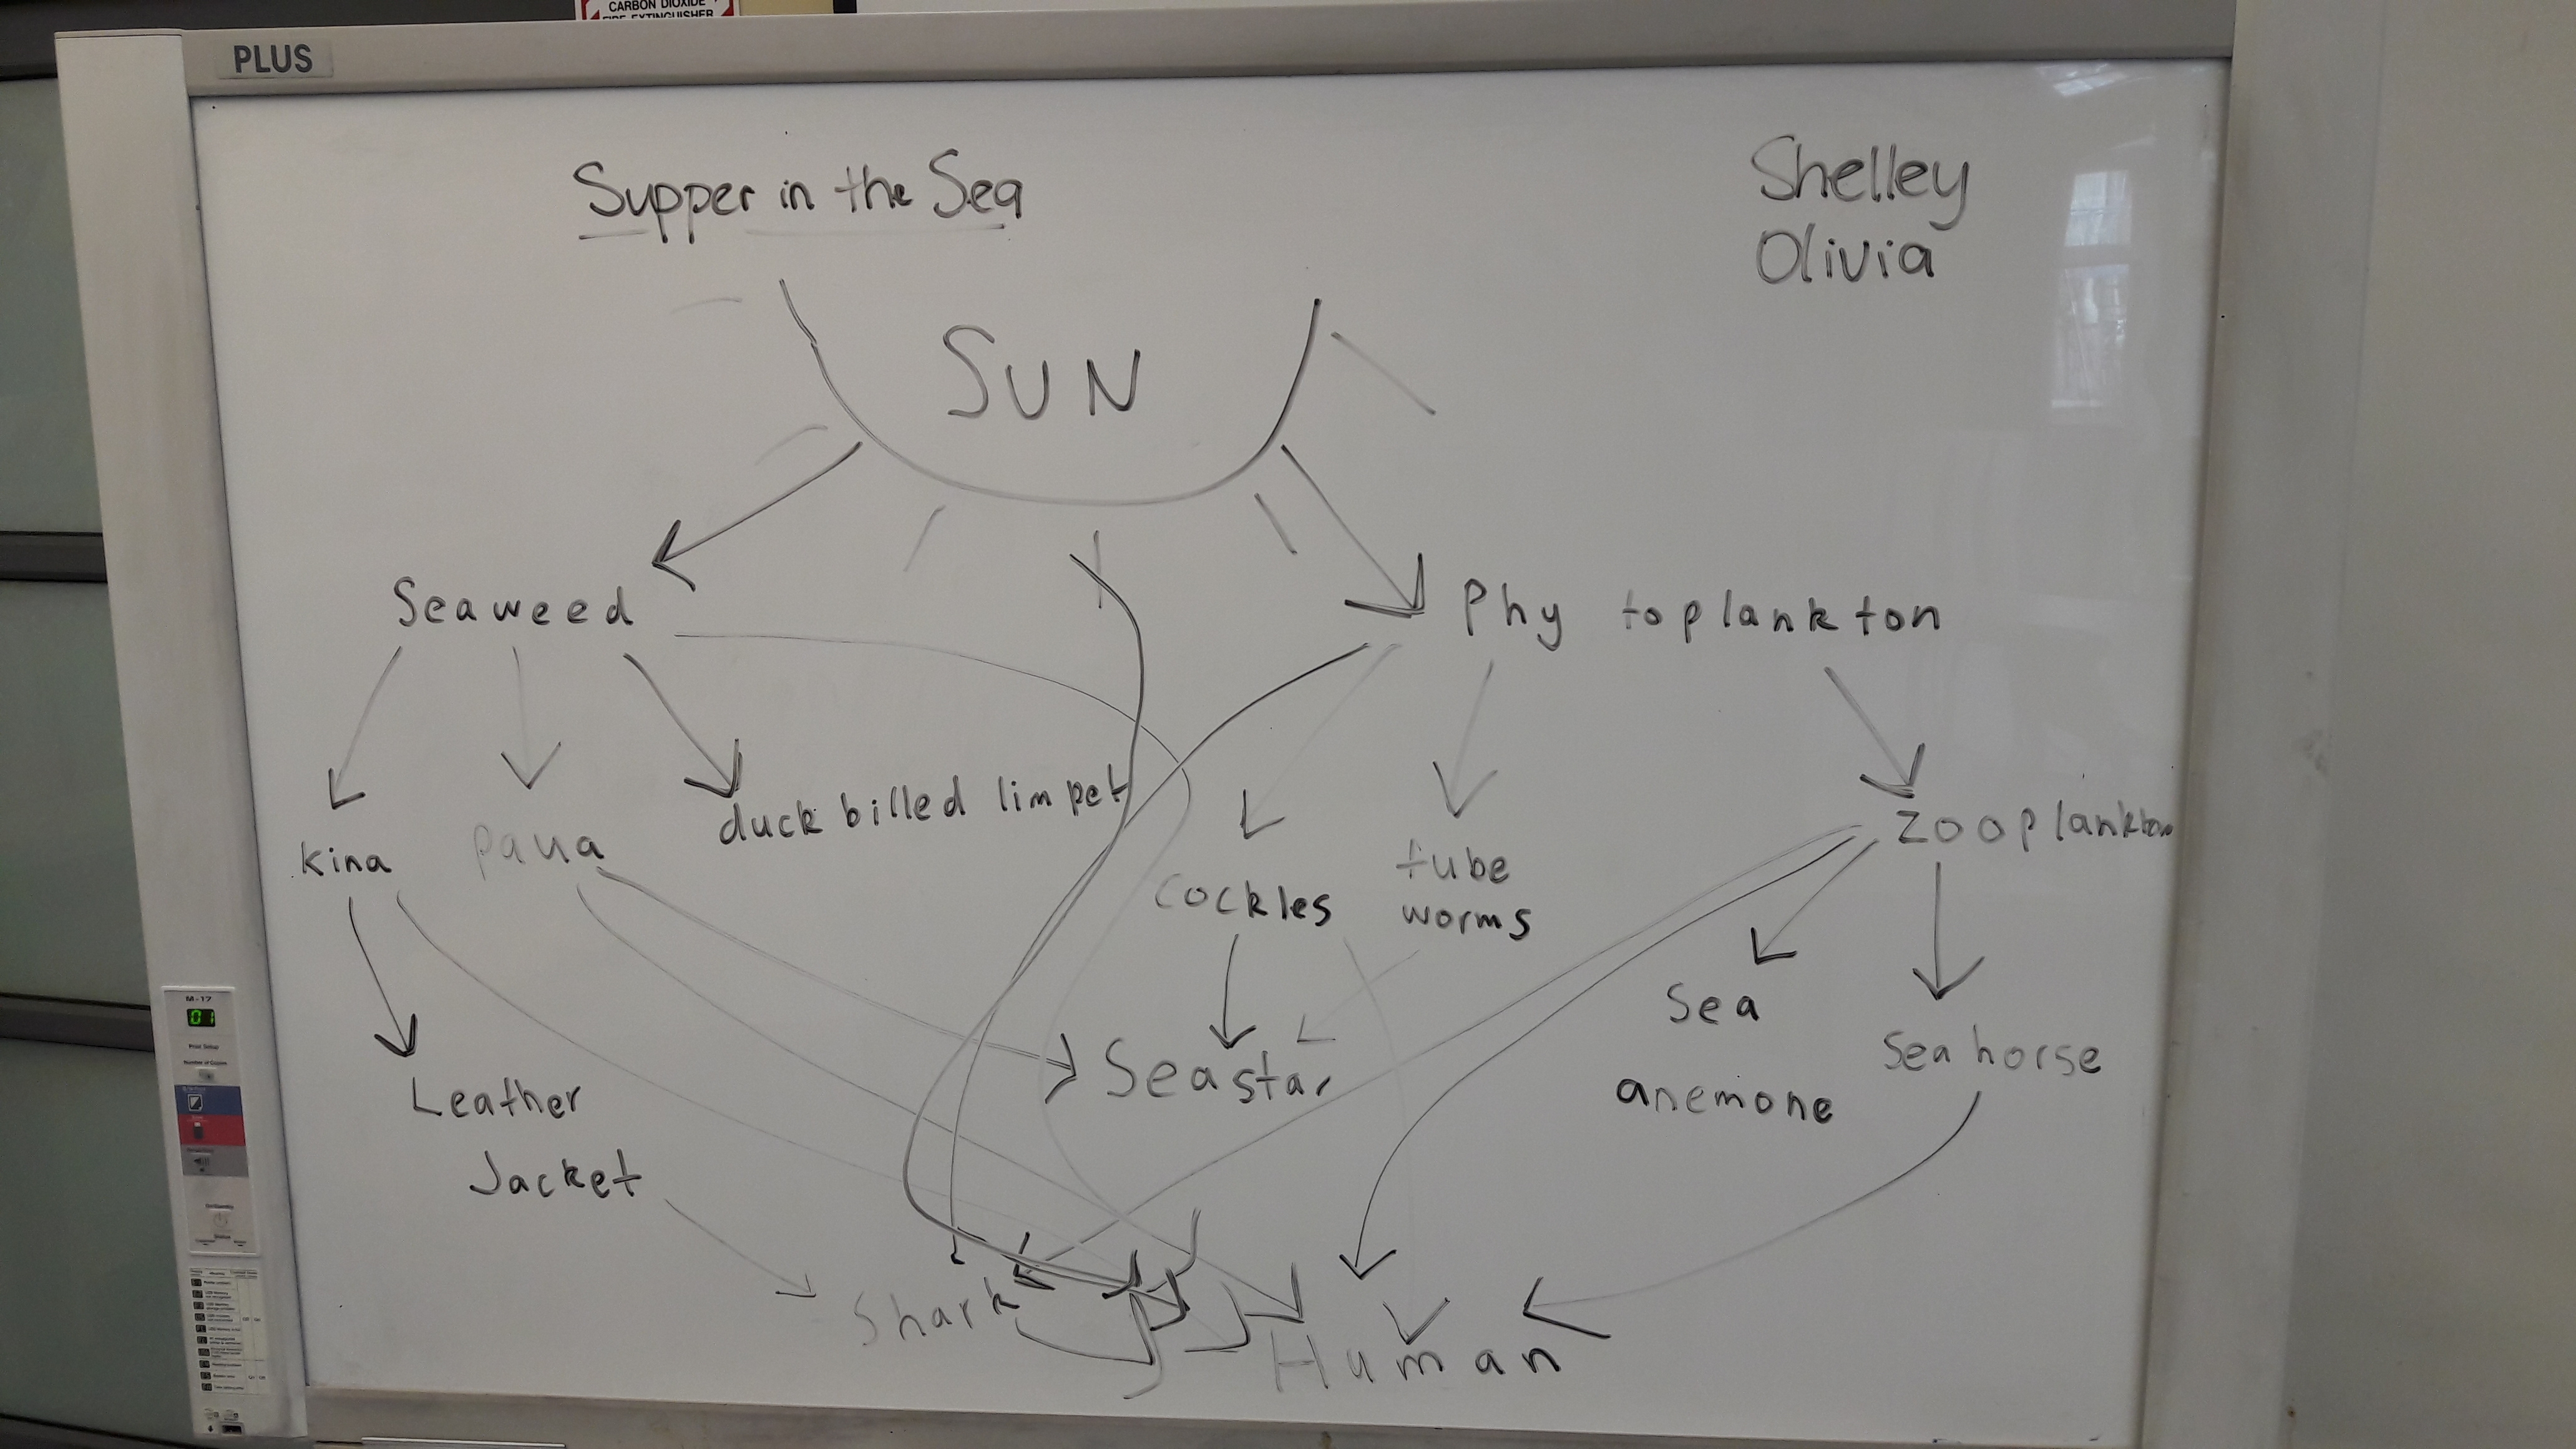 CARBON DIOXIDE
FIRE EXTINGUISHER
PLUS
Supper in the Sea
Shelley
Olivia
SUN
Seaweed
Phy toplankton
kina
paua
duck billed limpet
cockles
tube
worms
Zooplankton
Leather
Jacket
Seastar
Sea
anemone
Sea horse
Shark
Human
M-17
01